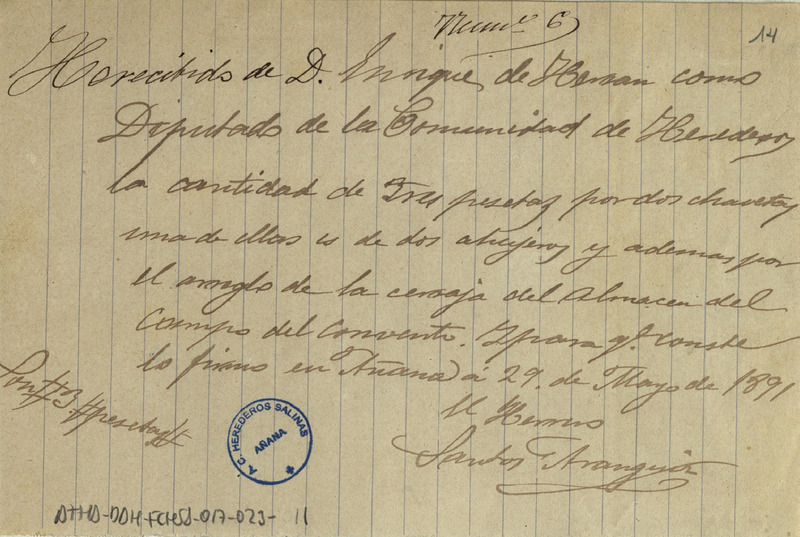 Numº 6
14
He recibido de D. Enrique de Herran como
Diputado de la Comunidad de Herederos
la cantidad de tres pesetas por dos chavetas
una de ellas es de dos abujeros y ademas por
el arreglo de la cerraja del Almacen del
Campo del Convento. Y para qº conste
lo firmo en Añana á 29. de Mayo de 1891
El Herrero
Santos Aranguiz
Son # 3 # pesetas #
A. C. HEREDEROS SALINAS
AÑANA
ATHA-DDH-FCHSA-017-023- 11